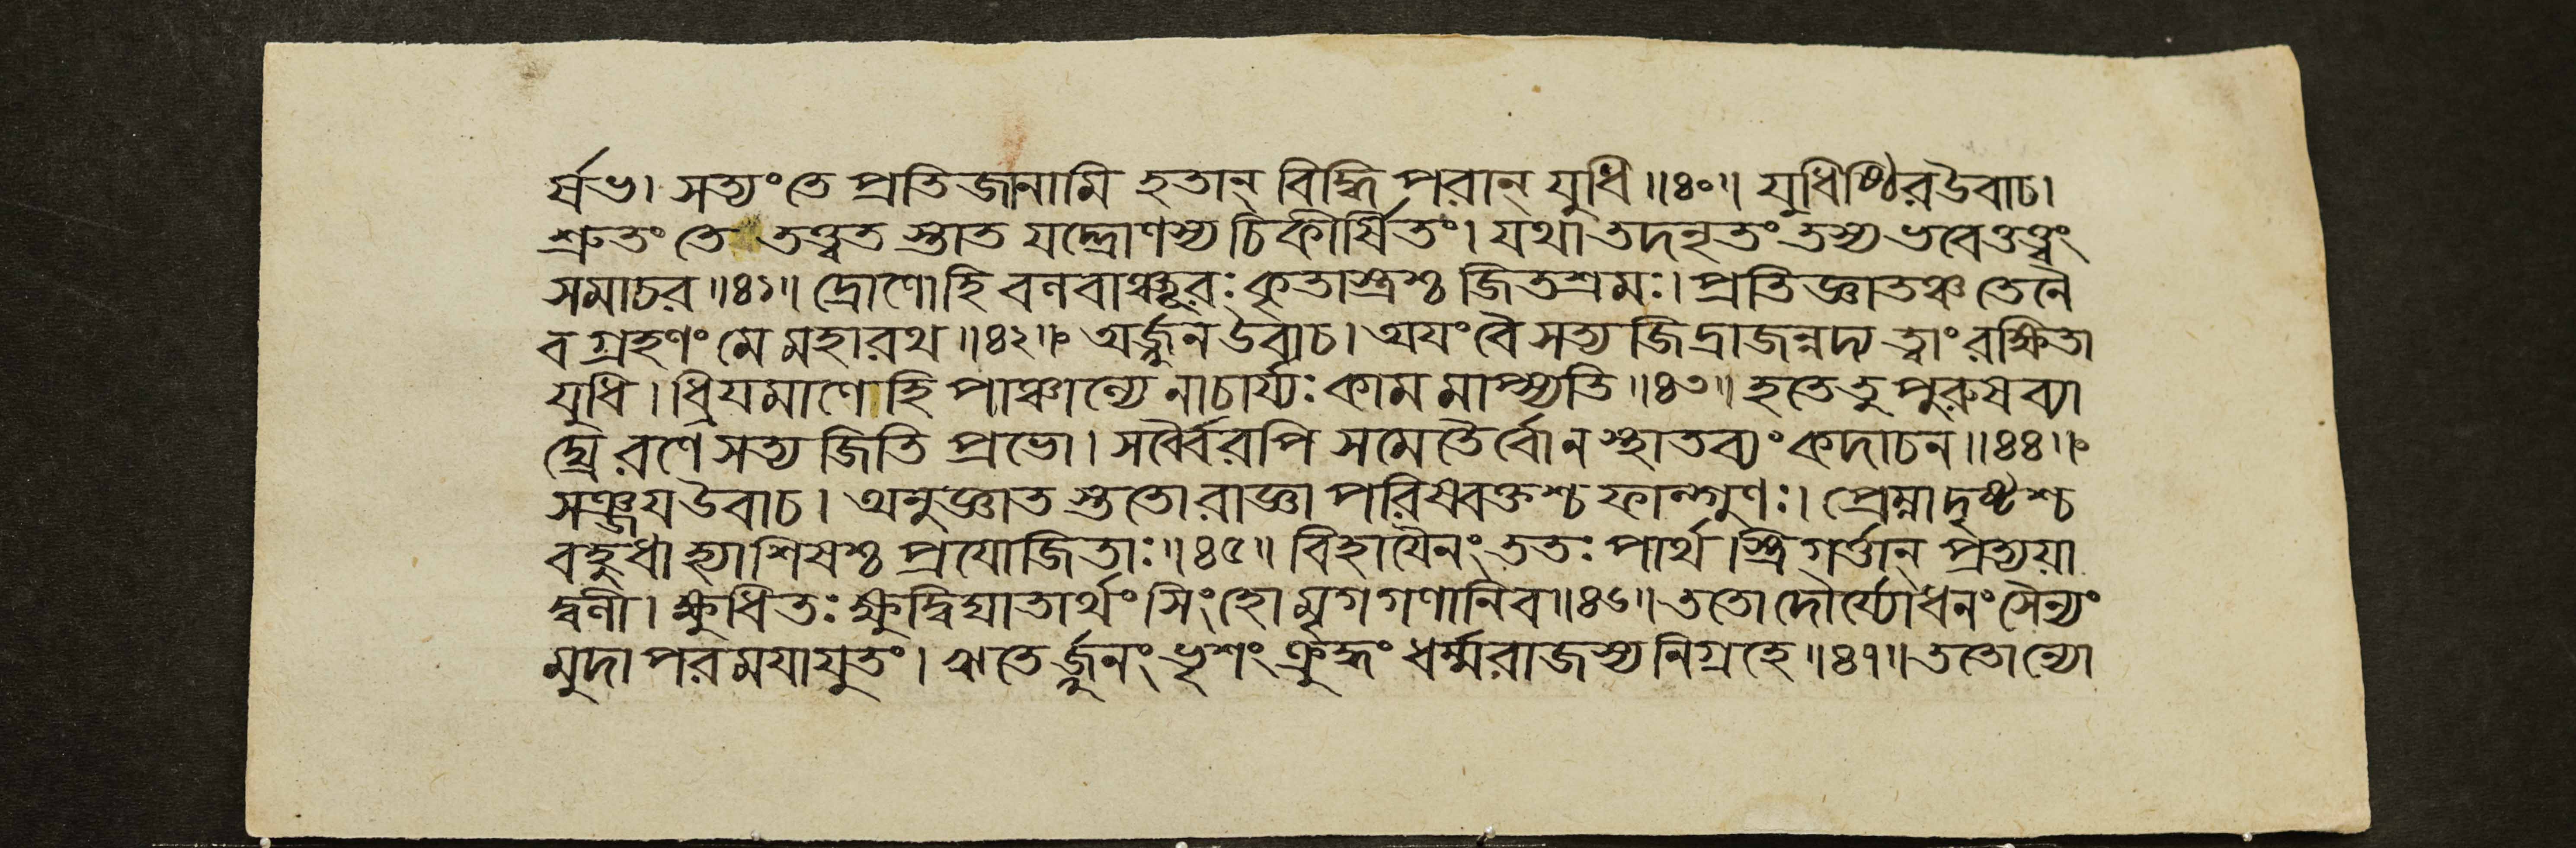 র্ষভ। সত্যং তে প্রতিজানামি হতান্ বিদ্ধি পরান্ যুধি॥৪০॥ যুধিষ্ঠিরউবাচ।
শ্রুতং তে তত্ত্বত স্তাত যদ্দ্রোণস্য চিকীর্ষিতং। যথা তদনৃতং তস্য ভবেত্তত্ত্বং
সমাচর॥৪১॥ দ্রোণোহি বলবাঞ্ছূরঃ কৃতাস্ত্রশ্চ জিতশ্রমঃ। প্রতিজ্ঞাতঞ্চ তেনৈ
ব গ্রহণং মে মহারথ॥৪২॥ অর্জ্জুনউবাচ। অয়ংবৈ সত্যজিদ্রাজন্নদ্য ত্বাং রক্ষিতা
যুধি। ধ্রিয়মাণোহি পাঞ্চাল্যে নাচার্য্যঃ কামমাপ্স্যতি॥৪৩॥ হতেতু পুরুষব্যা
ঘ্রে রণে সত্যজিতি প্রভো। সর্ব্বৈরপি সমেতৈর্ব্বা ন স্থাতব্যং কদাচন॥৪৪॥
সঞ্জয়উবাচ। অনুজ্ঞাত স্ততো রাজ্ঞা পরিষ্বক্তশ্চ ফাল্গুণঃ। প্রেম্না দৃষ্টশ্চ
বহুধা হ্যাশিষশ্চ প্রযোজিতাঃ॥৪৫॥ বিহায়ৈনং ততঃ পার্থ। স্ত্রিগর্ত্তান্ প্রত্যয়া
দ্বলী। ক্ষুধিতঃ ক্ষুদ্বিঘাতার্থং সিংহো মৃগগণানিব॥৪৬॥ ততো দৌর্য্যোধনং সৈন্যং
মুদা পরময়াযুতং। ঋতের্জ্জুনং ভৃশং ক্রুদ্ধং ধর্ম্মরাজস্য নিগ্রহে॥৪৭॥ ততোন্যো